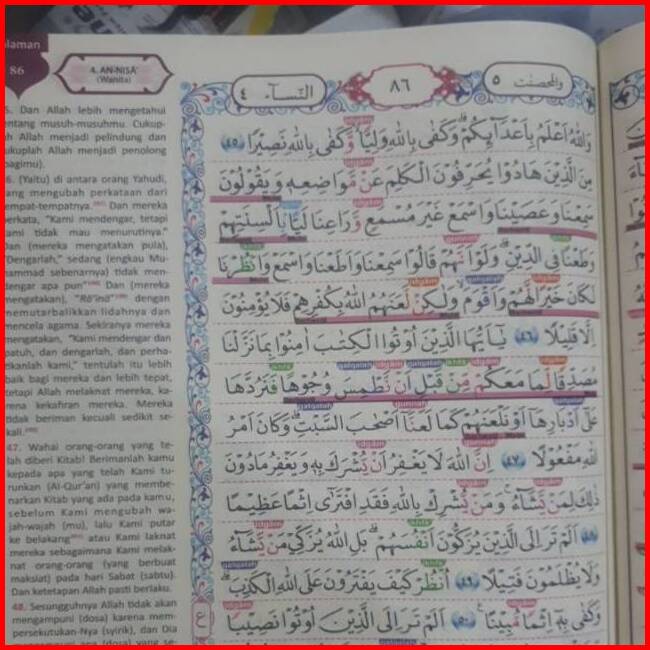 alaman
86
4. AN-NISĀ'
(Wanita)
5. Dan Allah lebih mengetahui
entang musuh-musuhmu. Cukup-
h Allah menjadi pelindung dan
ukuplah Allah menjadi penolong
bagimu).
6. (Yaitu) di antara orang Yahudi,
ang mengubah perkataan dari
empat-tempatnya. Dan mereka
erkata, "Kami mendengar, tetapi
ami tidak mau menurutinya."
Dan (mereka mengatakan pula),
"Dengarlah," sedang (engkau Mu-
ammad sebenarnya) tidak men-
dengar apa pun" Dan (mereka
mengatakan), "Rā'inā" dengan
memutarbalikkan lidahnya dan
mencela agama. Sekiranya mereka
mengatakan, "Kami mendengar dan
patuh, dan dengarlah, dan perha-
tikanlah kami," tentulah itu lebih
baik bagi mereka dan lebih tepat,
tetapi Allah melaknat mereka, ka-
rena kekafiran mereka. Mereka
tidak beriman kecuali sedikit se-
kali.
47. Wahai orang-orang yang te-
lah diberi Kitab! Berimanlah kamu
kepada apa yang telah Kami tu-
runkan (Al-Qur'an) yang membe-
narkan Kitab yang ada pada kamu,
sebelum Kami mengubah wa-
jah-wajah (mu), lalu Kami putar
ke belakang atau Kami laknat
mereka sebagaimana Kami melak-
nat orang-orang (yang berbuat
maksiat) pada hari Sabat (sabtu).
Dan ketetapan Allah pasti berlaku.
48. Sesungguhnya Allah tidak akan
mengampuni (dosa) karena mem-
persekutukan-Nya (syirik), dan Dia
والمحصنت ٥
٨٦
النساء ٤
وَاللّٰهُ اَعْلَمُ بِاَعْدَاۤىِٕكُمْ ۗوَكَفٰى بِاللّٰهِ وَلِيًّا ۙوَّكَفٰى بِاللّٰهِ نَصِيْرًا ٤٥
مِنَ الَّذِيْنَ هَادُوْا يُحَرِّفُوْنَ الْكَلِمَ عَنْ مَّوَاضِعِهٖ وَيَقُوْلُوْنَ
سَمِعْنَا وَعَصَيْنَا وَاسْمَعْ غَيْرَ مُسْمَعٍ وَّرَاعِنَا لَيًّاۢ بِاَلْسِنَتِهِمْ
وَطَعْنًا فِى الدِّيْنِۗ وَلَوْ اَنَّهُمْ قَالُوْا سَمِعْنَا وَاَطَعْنَا وَاسْمَعْ وَانْظُرْنَا
لَكَانَ خَيْرًا لَّهُمْ وَاَقْوَمَۙ وَلٰكِنْ لَّعَنَهُمُ اللّٰهُ بِكُفْرِهِمْ فَلَا يُؤْمِنُوْنَ
اِلَّا قَلِيْلًا ٤٦ يٰٓاَيُّهَا الَّذِيْنَ اُوْتُوا الْكِتٰبَ اٰمِنُوْا بِمَا نَزَّلْنَا
مُصَدِّقًا لِّمَا مَعَكُمْ مِّنْ قَبْلِ اَنْ نَّطْمِسَ وُجُوْهًا فَنَرُدَّهَا
عَلٰٓى اَدْبَارِهَآ اَوْ نَلْعَنَهُمْ كَمَا لَعَنَّآ اَصْحٰبَ السَّبْتِ ۗ وَكَانَ اَمْرُ
اللّٰهِ مَفْعُوْلًا ٤٧ اِنَّ اللّٰهَ لَا يَغْفِرُ اَنْ يُّشْرَكَ بِهٖ وَيَغْفِرُ مَا دُوْنَ
ذٰلِكَ لِمَنْ يَّشَاۤءُ ۚ وَمَنْ يُّشْرِكْ بِاللّٰهِ فَقَدِ افْتَرٰٓى اِثْمًا عَظِيْمًا
٤٨ اَلَمْ تَرَ اِلَى الَّذِيْنَ يُزَكُّوْنَ اَنْفُسَهُمْ ۗ بَلِ اللّٰهُ يُزَكِّيْ مَنْ يَّشَاۤءُ
وَلَا يُظْلَمُوْنَ فَتِيْلًا ٤٩ اُنْظُرْ كَيْفَ يَفْتَرُوْنَ عَلَى اللّٰهِ الْكَذِبَۗ
وَكَفٰى بِهٖٓ اِثْمًا مُّبِيْنًا ٥٠ اَلَمْ تَرَ اِلَى الَّذِيْنَ اُوْتُوْا نَصِيْبًا